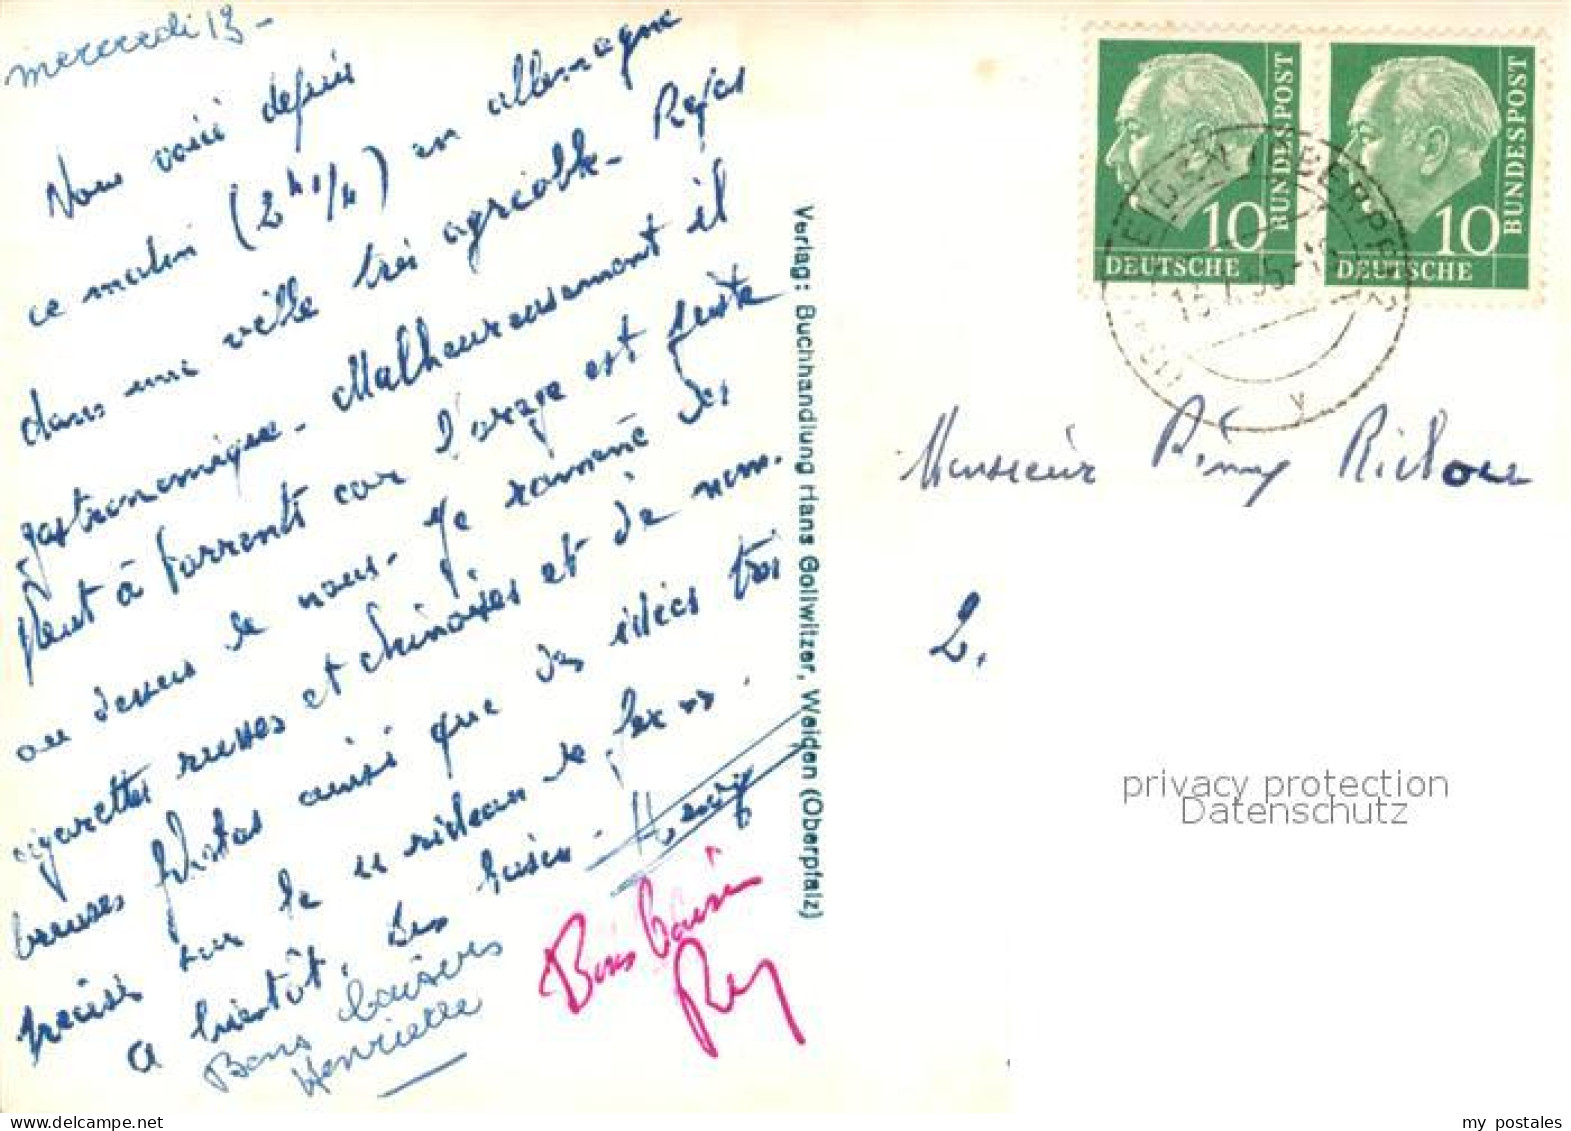 mercredi 13 -
Nous voici depuis
ce matin (2h 1/4) en allemagne
dans une ville très agréable - Repas
gastronomique - Malheureusement il
pleut à torrents car l'orage est juste
au dessus de nous - Je ramène des
cigarettes russes et chinoises et de nom-
breuses photos ainsi que des idées très
précises sur le "rideau de fer".
A bientôt, bons baisers - Henry
Bons baisers
Henriette
Bons baisers
Verlag: Buchhandlung Hans Gollwitzer, Weiden (Oberpfalz)
DEUTSCHE BUNDESPOST 10
DEUTSCHE BUNDESPOST 10
Monsieur
2.
privacy protection
Datenschutz
my postales